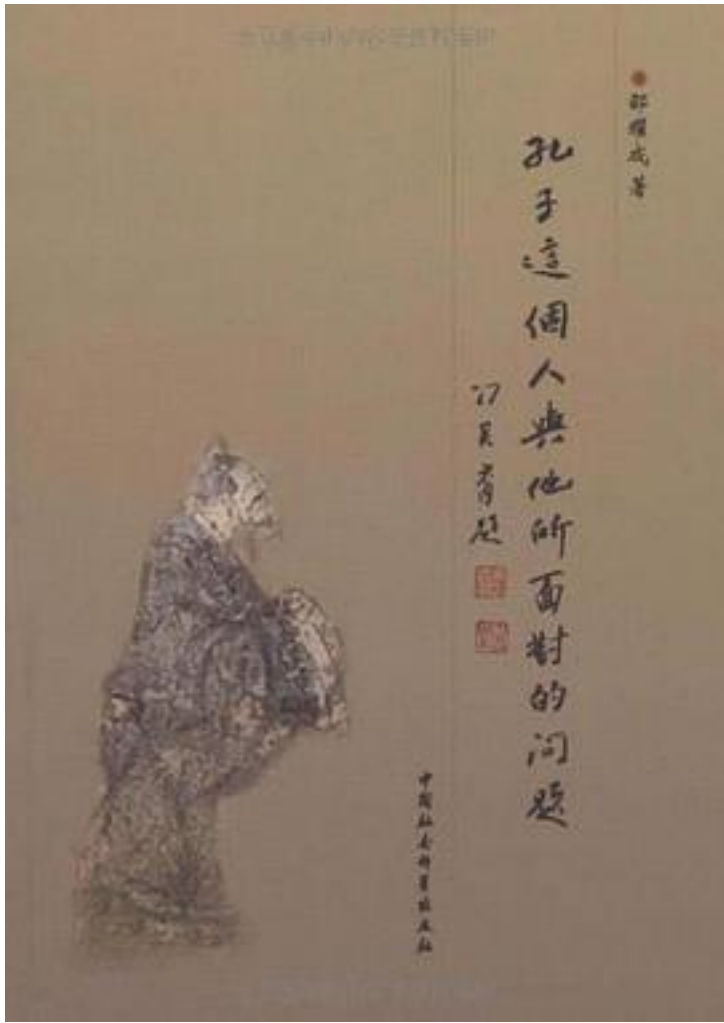 邵耀成 著
孔子這個人與他所面對的问题
冯其庸题
中国社会科学出版社